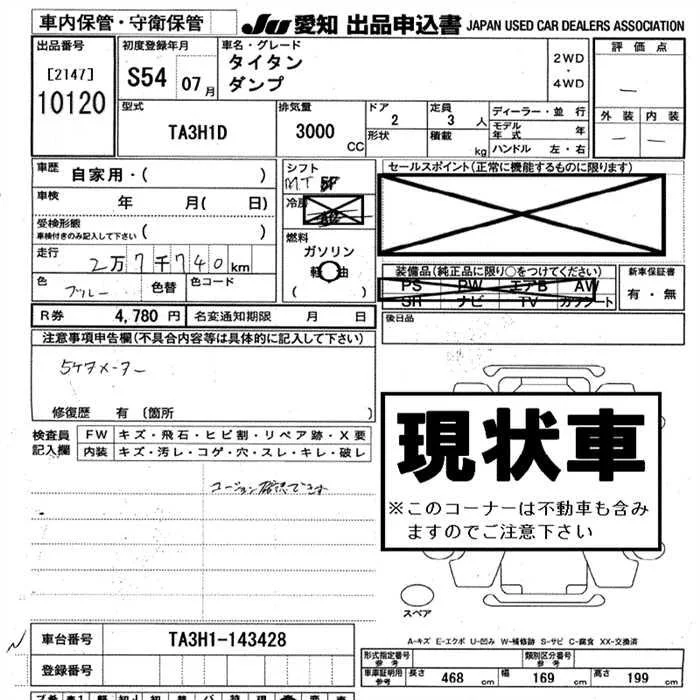 車内保管・守衛保管
JU 愛知 出品申込書 JAPAN USED CAR DEALERS ASSOCIATION
出品番号
[2147]
10120
初度登録年月
S54 07月
車名・グレード
タイタン
ダンプ
2WD
・
4WD
評価点
外装 内装
型式
TA3H1D
排気量
3000
CC
ドア
2
定員
3 人
形状
積載
kg
ディーラー・並行
モデル年式 年
ハンドル 左・右
車歴 自家用・( )
車検 年 月( 日)
受検形態
車検付きのみ記入して下さい ( )
走行
2万7千740km
色 ブルー 色替 色コード
シフト
M.T 5F
冷房
燃料
ガソリン
軽油
( )
セールスポイント(正常に機能するものに限ります)
装備品(純正品に限り○をつけてください)
PS PW エアB AW
SR ナビ TV カワシート
新車保証書
有・無
R券 4,780 円 名変通知期限 月 日
後日品
注意事項申告欄(不具合内容等は具体的に記入して下さい)
5ケタメーター
修復歴 有 〔箇所 〕
検査員
記入欄
FW キズ・飛石・ヒビ割・リペア跡・X要
内装 キズ・汚レ・コゲ・穴・スレ・キレ・破レ
現状車
※このコーナーは不動車も含み
ますのでご注意下さい
スペア
A-キズ E-エクボ U-凹み W-補修跡 S-サビ C-腐食 XX-交換済
車台番号 TA3H1-143428
登録番号
形式指定番号
参考
類別区分番号
参考
車庫証明用
参考
長さ 468 cm 幅 169 cm 高さ 199 cm